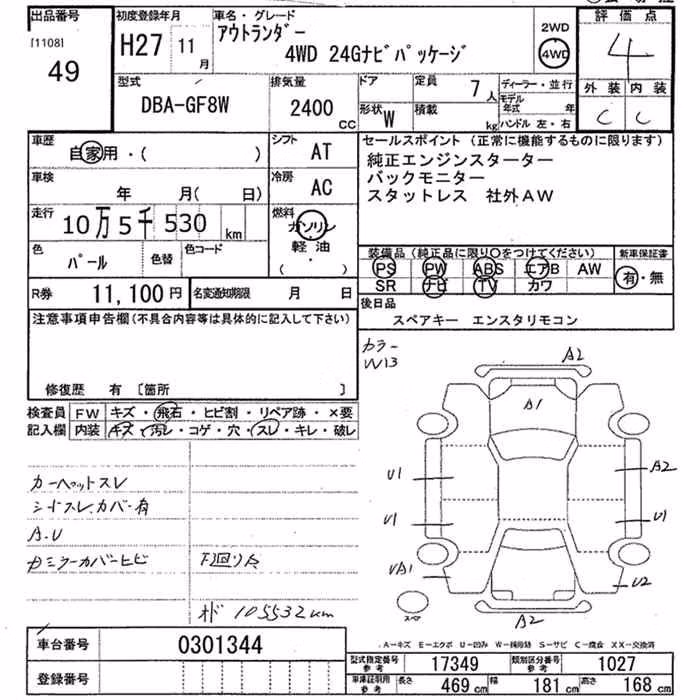 出品番号
[1108]
49
初度登録年月
H27 11月
車名・グレード
アウトランダー
4WD 24Gナビパッケージ
2WD
4WD
評価点
4
外装 内装
C C
型式
DBA-GF8W
排気量
2400
CC
ドア
形状 W
定員 7人
積載 kg
ディーラー・並行
モデル年式 年
ハンドル 左・右
車歴
自家用・( )
シフト AT
車検
年 月( 日)
冷房 AC
走行
10万5千530 km
燃料
ガソリン
軽・油
( )
色
パール
色替
色コード
セールスポイント (正常に機能するものに限ります)
純正エンジンスターター
バックモニター
スタットレス 社外AW
装備品 (純正品に限り○をつけてください)
PS PW ABS エアB AW
SR ナビ TV カワ
新車保証書
有・無
R券 11,100円
名変通知期限 月 日
後日品
スペアキー エンスタリモコン
注意事項申告欄 (不具合内容等は具体的に記入して下さい)
修復歴 有 [箇所 ]
検査員
記入欄
FW キズ・飛石・ヒビ割・リペア跡・×要
内装 キズ・汚レ・コゲ・穴・スレ・キレ・破レ
カーペットスレ
シートスレ.カバー有
A.U
カラー
W13
A2
A1
U1
A2
U1
U1
U2
A2
スペア
下回りサ
105532km
A－キズ E－エクボ U－凹み W－補修跡 S－サビ C－腐食 XX－交換済
車台番号 0301344
登録番号
型式指定番号 参考 17349
類別区分番号 参考 1027
車庫証明用 参考 長さ 469cm 幅 181cm 高さ 168cm